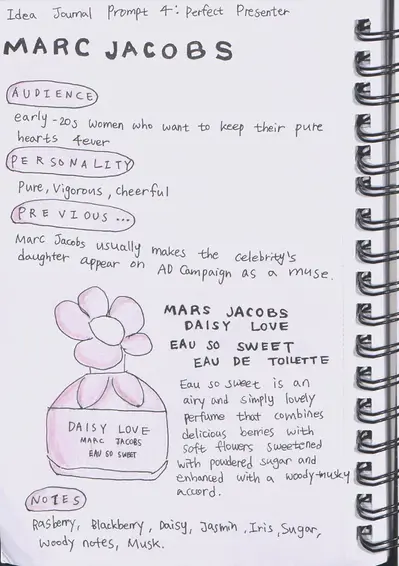 Idea Journal Prompt 4: Perfect Presenter
MARC JACOBS
AUDIENCE
early-20s women who want to keep their pure
hearts 4ever
PERSONALITY
Pure, Vigorous, cheerful
PREVIOUS...
Marc Jacobs usually makes the celebrity's
daughter appear on AD Campaign as a muse.
MARS JACOBS
DAISY LOVE
EAU SO SWEET
EAU DE TOILETTE
Eau so sweet is an
airy and simply lovely
perfume that combines
delicious berries with
soft flowers sweetened
with powdered sugar and
enhanced with a woody-musky
accord.
DAISY LOVE
MARC JACOBS
EAU SO SWEET
NOTES
Rasberry, Blackberry, Daisy, Jasmin, Iris, Sugar,
Woody notes, Musk.